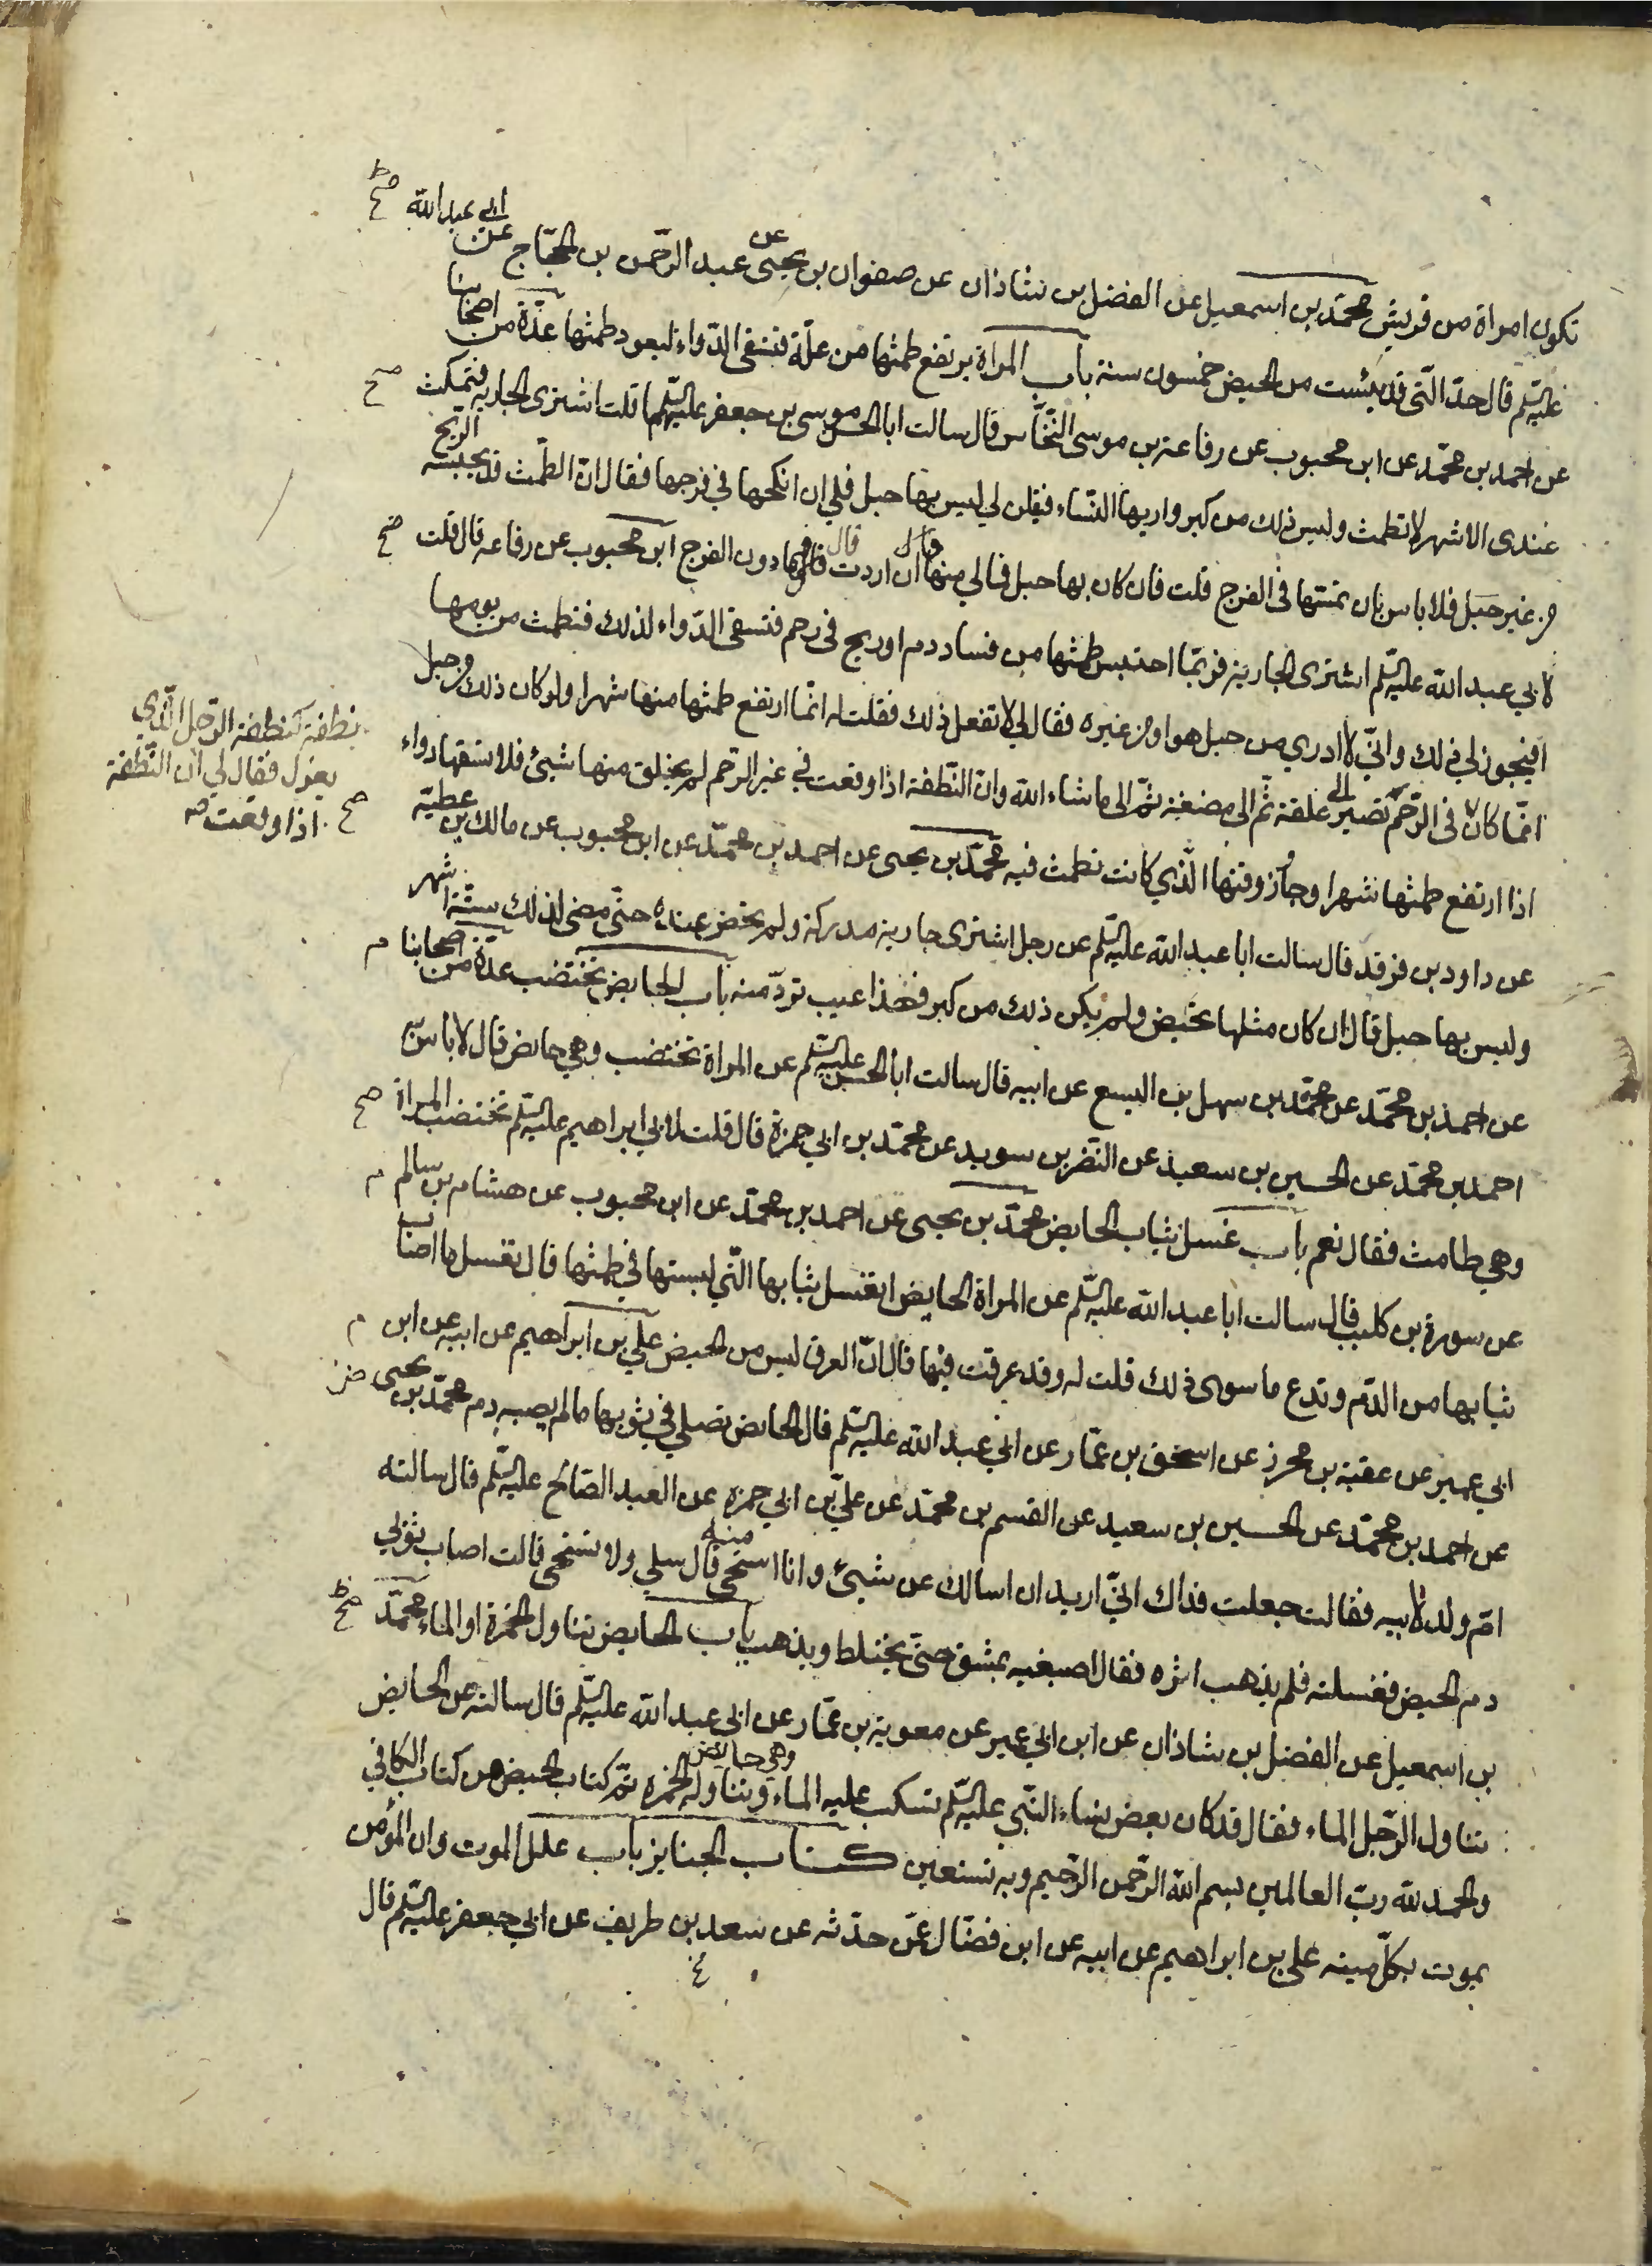 تكون امراة من قريش محمّد بن اسمعيل عن الفضل بن شاذان عن صفوان بن يحيى عن عبد الرّحمن بن الحجّاج عن ابي عبد الله صح
عليه السّلم قال حدّ الّتي قد يئست من الحيض خمسون سنة باب المراة يرتفع طمثها من علّة فتسقى الدّواء ليعود طمثها عدّة من اصحابنا
عن احمد بن محمّد عن ابن محبوب عن رفاعة بن موسى النّخّاس قال سالت ابا الحسن موسى بن جعفر عليهما السّلم قلت اشترى الجارية فتمكث صح
عندى الاشهر لا تطمث وليس ذلك من كبر واريها النّساء فيقلن لي ليس بها حبل فلي ان انكحها في فرجها فقال انّ الطّمث قد يحبسه الرّيح
من غير حبل فلا باس بان تمسّها في الفرج قلت فان كان بها حبل فما لي منها قال ان اردت قال فما دون الفرج ابن محبوب عن رفاعه قال قلت صح
لابي عبد الله عليه السّلم اشترى الجارية فربّما احتبس طمثها من فساد دم او ريح في رحم فتسقى الدّواء لذلك فتطمث من يومها
افيجوز لي ذلك وانّي لا ادري من حبل هو او من غيره فقال لي لا تفعل ذلك فقلت له انّما ارتفع طمثها منها شهرا ولو كان ذلك من حبل
انّما كان نطفة كنطفة الرّجل الّذي
يعزل فقال لي انّ النّطفة
اذا وقعت صح
في الرّحم تصير الى علقة ثمّ الى مضغة ثمّ الى ما شاء الله وانّ النّطفة اذا وقعت في غير الرّحم لم يخلق منها شيئ فلا تسقها دواء
اذا ارتفع طمثها شهرا وجاز وقتها الّذي كانت تطمث فيه محمّد بن يحيى عن احمد بن محمّد عن ابن محبوب عن مالك بن عطيّة
عن داود بن فرقد قال سالت ابا عبد الله عليه السّلم عن رجل اشترى جارية مدركة ولم تحض عنده حتّى مضى لذلك ستّة اشهر
وليس بها حبل قال ان كان مثلها تحيض ولم يكن ذلك من كبر فهذا عيب تردّ منه باب الحايض تختضب عدّة من اصحابنا م
عن احمد بن محمّد عن محمّد بن سهل بن اليسع عن ابيه قال سالت ابا الحسن عليه السّلم عن المراة تختضب وهي حايض قال لا باس به
احمد بن محمّد عن الحسين بن سعيد عن النّضر بن سويد عن محمّد بن ابي حمزة قال قلت لابي ابراهيم عليه السّلم تختضب المراة صح
وهي طامث فقال نعم باب غسل ثياب الحايض محمّد بن يحيى عن احمد بن محمّد عن ابن محبوب عن هشام بن سالم م
عن سورة بن كليب قال سالت ابا عبد الله عليه السّلم عن المراة الحايض اتغسل ثيابها الّتي لبستها في طمثها قال تغسل ما اصاب
ثيابها من الدّم وتدع ما سوى ذلك قلت له وقد عرقت فيها قال انّ العرق ليس من الحيض علي بن ابراهيم عن ابيه عن ابن م
ابي عمير عن عقبة بن محرز عن اسحق بن عمّار عن ابي عبد الله عليه السّلم قال الحائض تصلي في ثوبها ما لم يصبه دم محمّد بن يحيى
عن احمد بن محمّد عن الحسين بن سعيد عن القسم بن محمّد عن عليّ بن ابي حمزه عن العبد الصّالح عليه السّلم قال سالته
امّ ولد لابيه فقالت جعلت فداك انّي اريد ان اسالك عن شيئ وانا استحي منه قال سلي ولا تستحي قالت اصاب ثوبي
دم الحيض فغسلته فلم يذهب اثره فقال اصبغيه بمشق حتّى يختلط ويذهب باب الحايض تناول الخمرة او الماء محمّد صح
بن اسمعيل عن الفضل بن شاذان عن ابن ابي عمير عن معوية بن عمّار عن ابي عبد الله عليه السّلم قال سالته عن الحايض
تناول الرّجل الماء فقال قد كان بعض نساء النّبي عليه السّلم تسكب عليه الماء وهي حايض وتناوله الخمره تمّ كتاب الحيض من كتاب الكافي
والحمد لله ربّ العالمين بسم الله الرّحمن الرّحيم وبه نستعين كتاب الجنايز باب علل الموت وان المؤمن
يموت بكلّ ميته علي بن ابراهيم عن ابيه عن ابن فضّال عمّن حدّثه عن سعد بن طريف عن ابي جعفر عليه السّلم قال